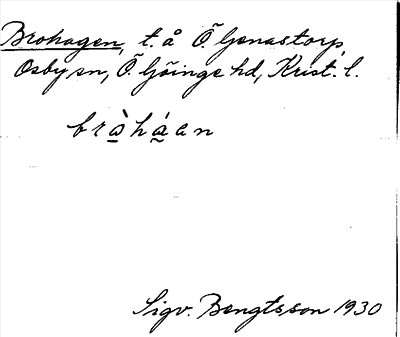 Brohagen, t. å Ö. Genastorp,
Osby sn, Ö. Göinge hd, Krist. l.
brà̱há̱an
Sigv. Bengtsson 1930